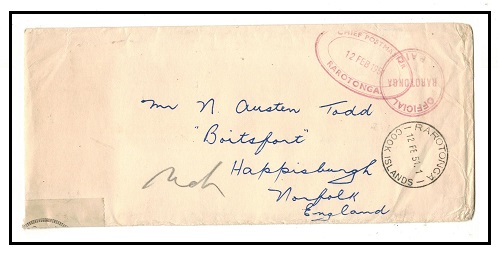 CHIEF POSTMASTER
12 FEB 51
RAROTONGA
OFFICIAL
PAID
RAROTONGA
Mr N. Austen Todd
"Boitsfort"
Happisburgh
Norfolk
England
RAROTONGA
12 FE 51
COOK ISLANDS